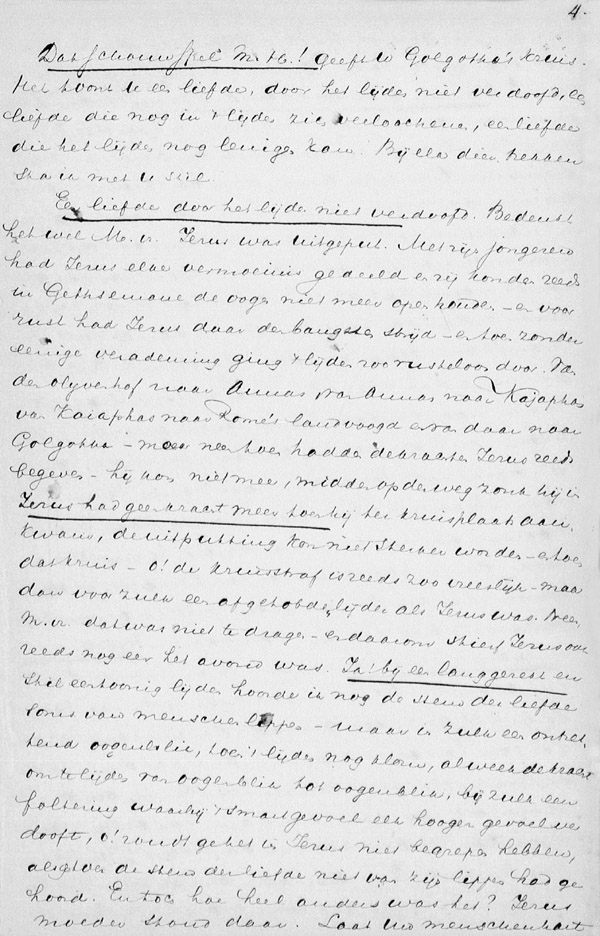 4.
Dat schouwspel M. H.! geeft U Golgotha's kruis.
Het toont U een liefde, door het lijden niet verdoofd, een
liefde die nog in 't lijden zich verloochent, een liefde
die het lijden nog lenigen kan. Bij elk dier trekken
sta ik met U stil.
Een liefde door het lijden niet verdoofd. Bedenkt
het wel M. vr. Jezus was uitgeput. Met zijn jongeren
had Jezus elke vermoeienis gedeeld en zij konden reeds
in Gethsemane de oogen niet meer open houden - en voor
rust had Jezus daar den bangsten strijd - en toen zonder
eenige verademing ging 't lijden zoo rusteloos door. Van
den olijvenhof naar Annas, van Annas naar Kajaphas
van Kaiaphas naar Rome's landvoogd en van daar naar
Golgotha - maar neen toen hadden de krachten Jezus reeds
begeven - hij kon niet meer, midden op den weg zonk hij in
Jezus had geen kracht meer toen hij ter kruisplaats aan
kwam, de uitputting kon niet sterker worden - en toen
dat kruis - o! de kruisstraf is reeds zoo vreeslijk - maar
dan voor zulk een afgetobden lijder als Jezus was. Neen,
M. vr. dat was niet te dragen - en daarom stierf Jezus ook
reeds nog eer het avond was. Ja! bij een lang gerest en
stil eentoonig lijden hoorde ik nog de stem der liefde
soms van menschen lippen - maar in zulk een ontzet-
tend oogenblik, toen 't lijden nog klom, al week de kracht
om te lijden van oogenblik tot oogenblik, bij zulk een
foltering waarbij 't smartgevoel elk hooger gevoel ver
dooft, o! zoudt ge het in Jezus niet begrepen hebben,
als ge toen de stem der liefde niet van zijn lippen had ge
hoord. En toch hoe heel anders was het? Jezus
moeder stond daar. Laat Uw menschenhart